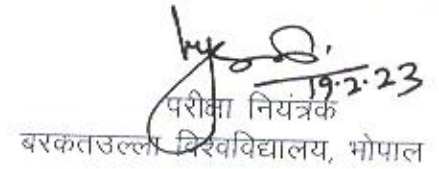 19.2.23
परीक्षा नियंत्रक
बरकतउल्ला विश्वविद्यालय, भोपाल